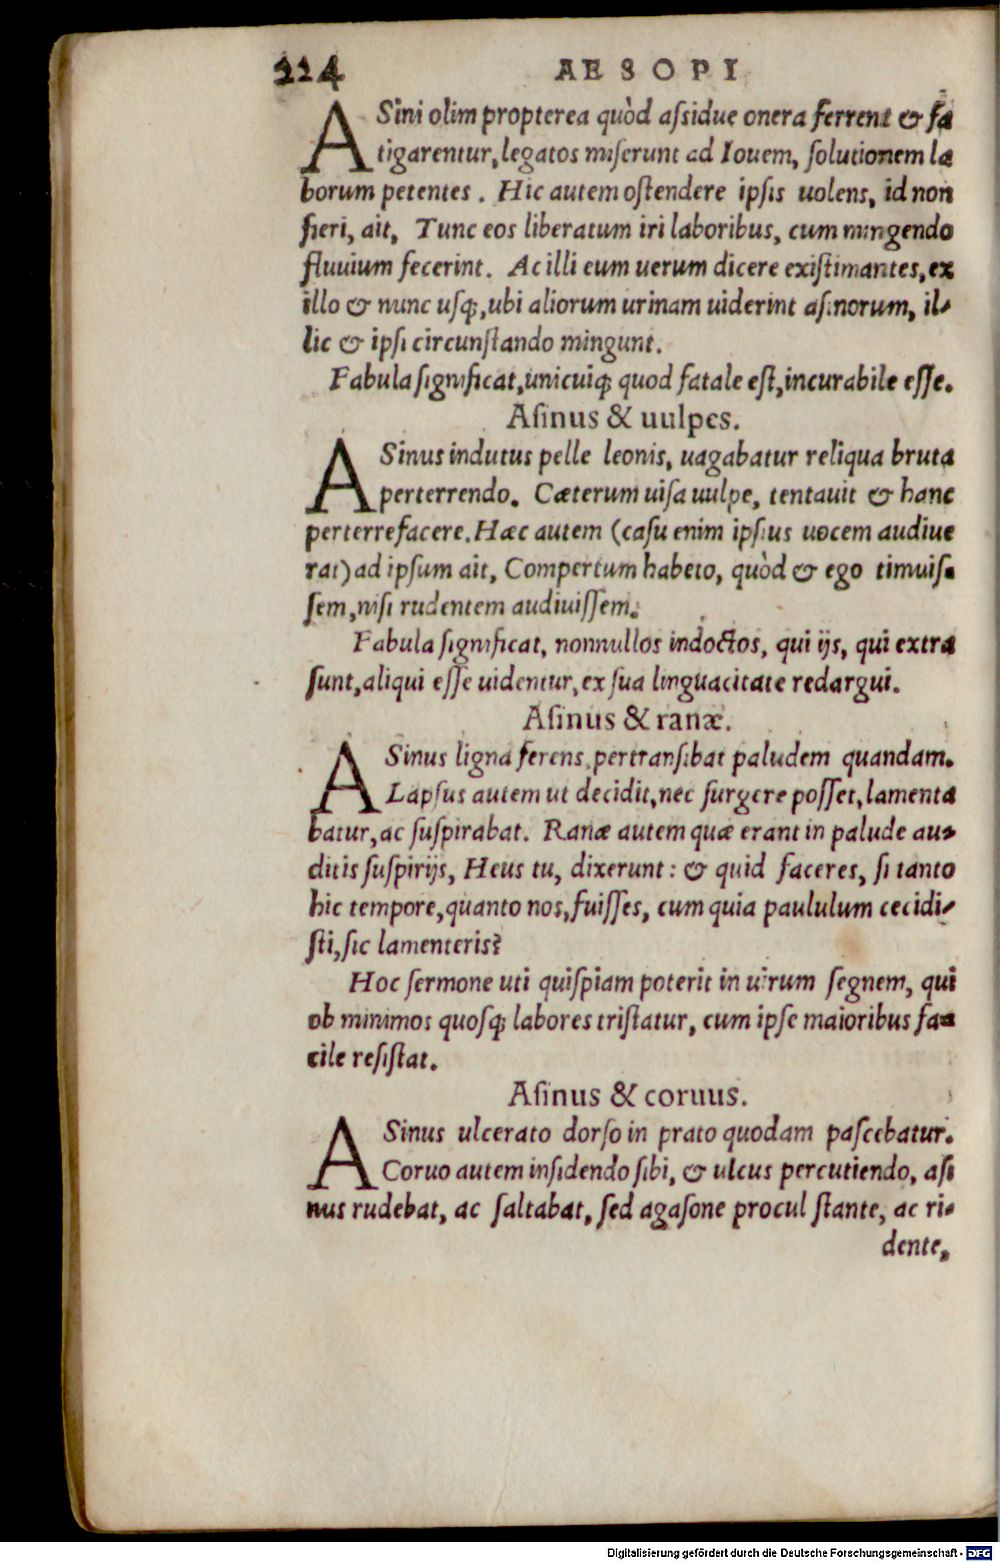 224 AESOPI
ASini olim propterea quòd aſsidue onera ferrent & fa
tigarentur, legatos miſerunt ad Iouem, ſolutionem la
borum petentes. Hic autem oſtendere ipſis uolens, id non
fieri, ait, Tunc eos liberatum iri laboribus, cum mingendo
fluuium fecerint. Ac illi eum uerum dicere exiſtimantes, ex
illo & nunc uſq;, ubi aliorum urinam uiderint aſinorum, il-
lic & ipſi circunſtando mingunt.
Fabula ſignificat, unicuiq; quod fatale eſt, incurabile eſſe.
Aſinus & uulpes.
ASinus indutus pelle leonis, uagabatur reliqua bruta
perterrendo. Cæterum uiſa uulpe, tentauit & hanc
perterrefacere. Hæc autem (caſu enim ipſius uocem audiue
rat) ad ipſum ait, Compertum habeto, quòd & ego timuiſ-
ſem, niſi rudentem audiuiſſem.
Fabula ſignificat, nonnullos indoctos, qui ijs, qui extra
ſunt, aliqui eſſe uidentur, ex ſua linguacitate redargui.
Aſinus & ranæ.
ASinus ligna ferens, pertranſibat paludem quandam.
Lapſus autem ut decidit, nec ſurgere poſſet, lamenta
batur, ac ſuſpirabat. Ranæ autem quæ erant in palude au-
ditis ſuſpirijs, Heus tu, dixerunt: & quid faceres, ſi tanto
hic tempore, quanto nos, fuiſſes, cum quia paululum cecidi-
ſti, ſic lamenteris?
Hoc ſermone uti quiſpiam poterit in uirum ſegnem, qui
ob minimos quoſq; labores triſtatur, cum ipſe maioribus fa-
cile reſiſtat.
Aſinus & coruus.
ASinus ulcerato dorſo in prato quodam paſcebatur.
Coruo autem inſidendo ſibi, & ulcus percutiendo, aſi
nus rudebat, ac ſaltabat, ſed agaſone procul ſtante, ac ri-
dente,
Digitalisierung gefördert durch die Deutsche Forschungsgemeinschaft - DFG